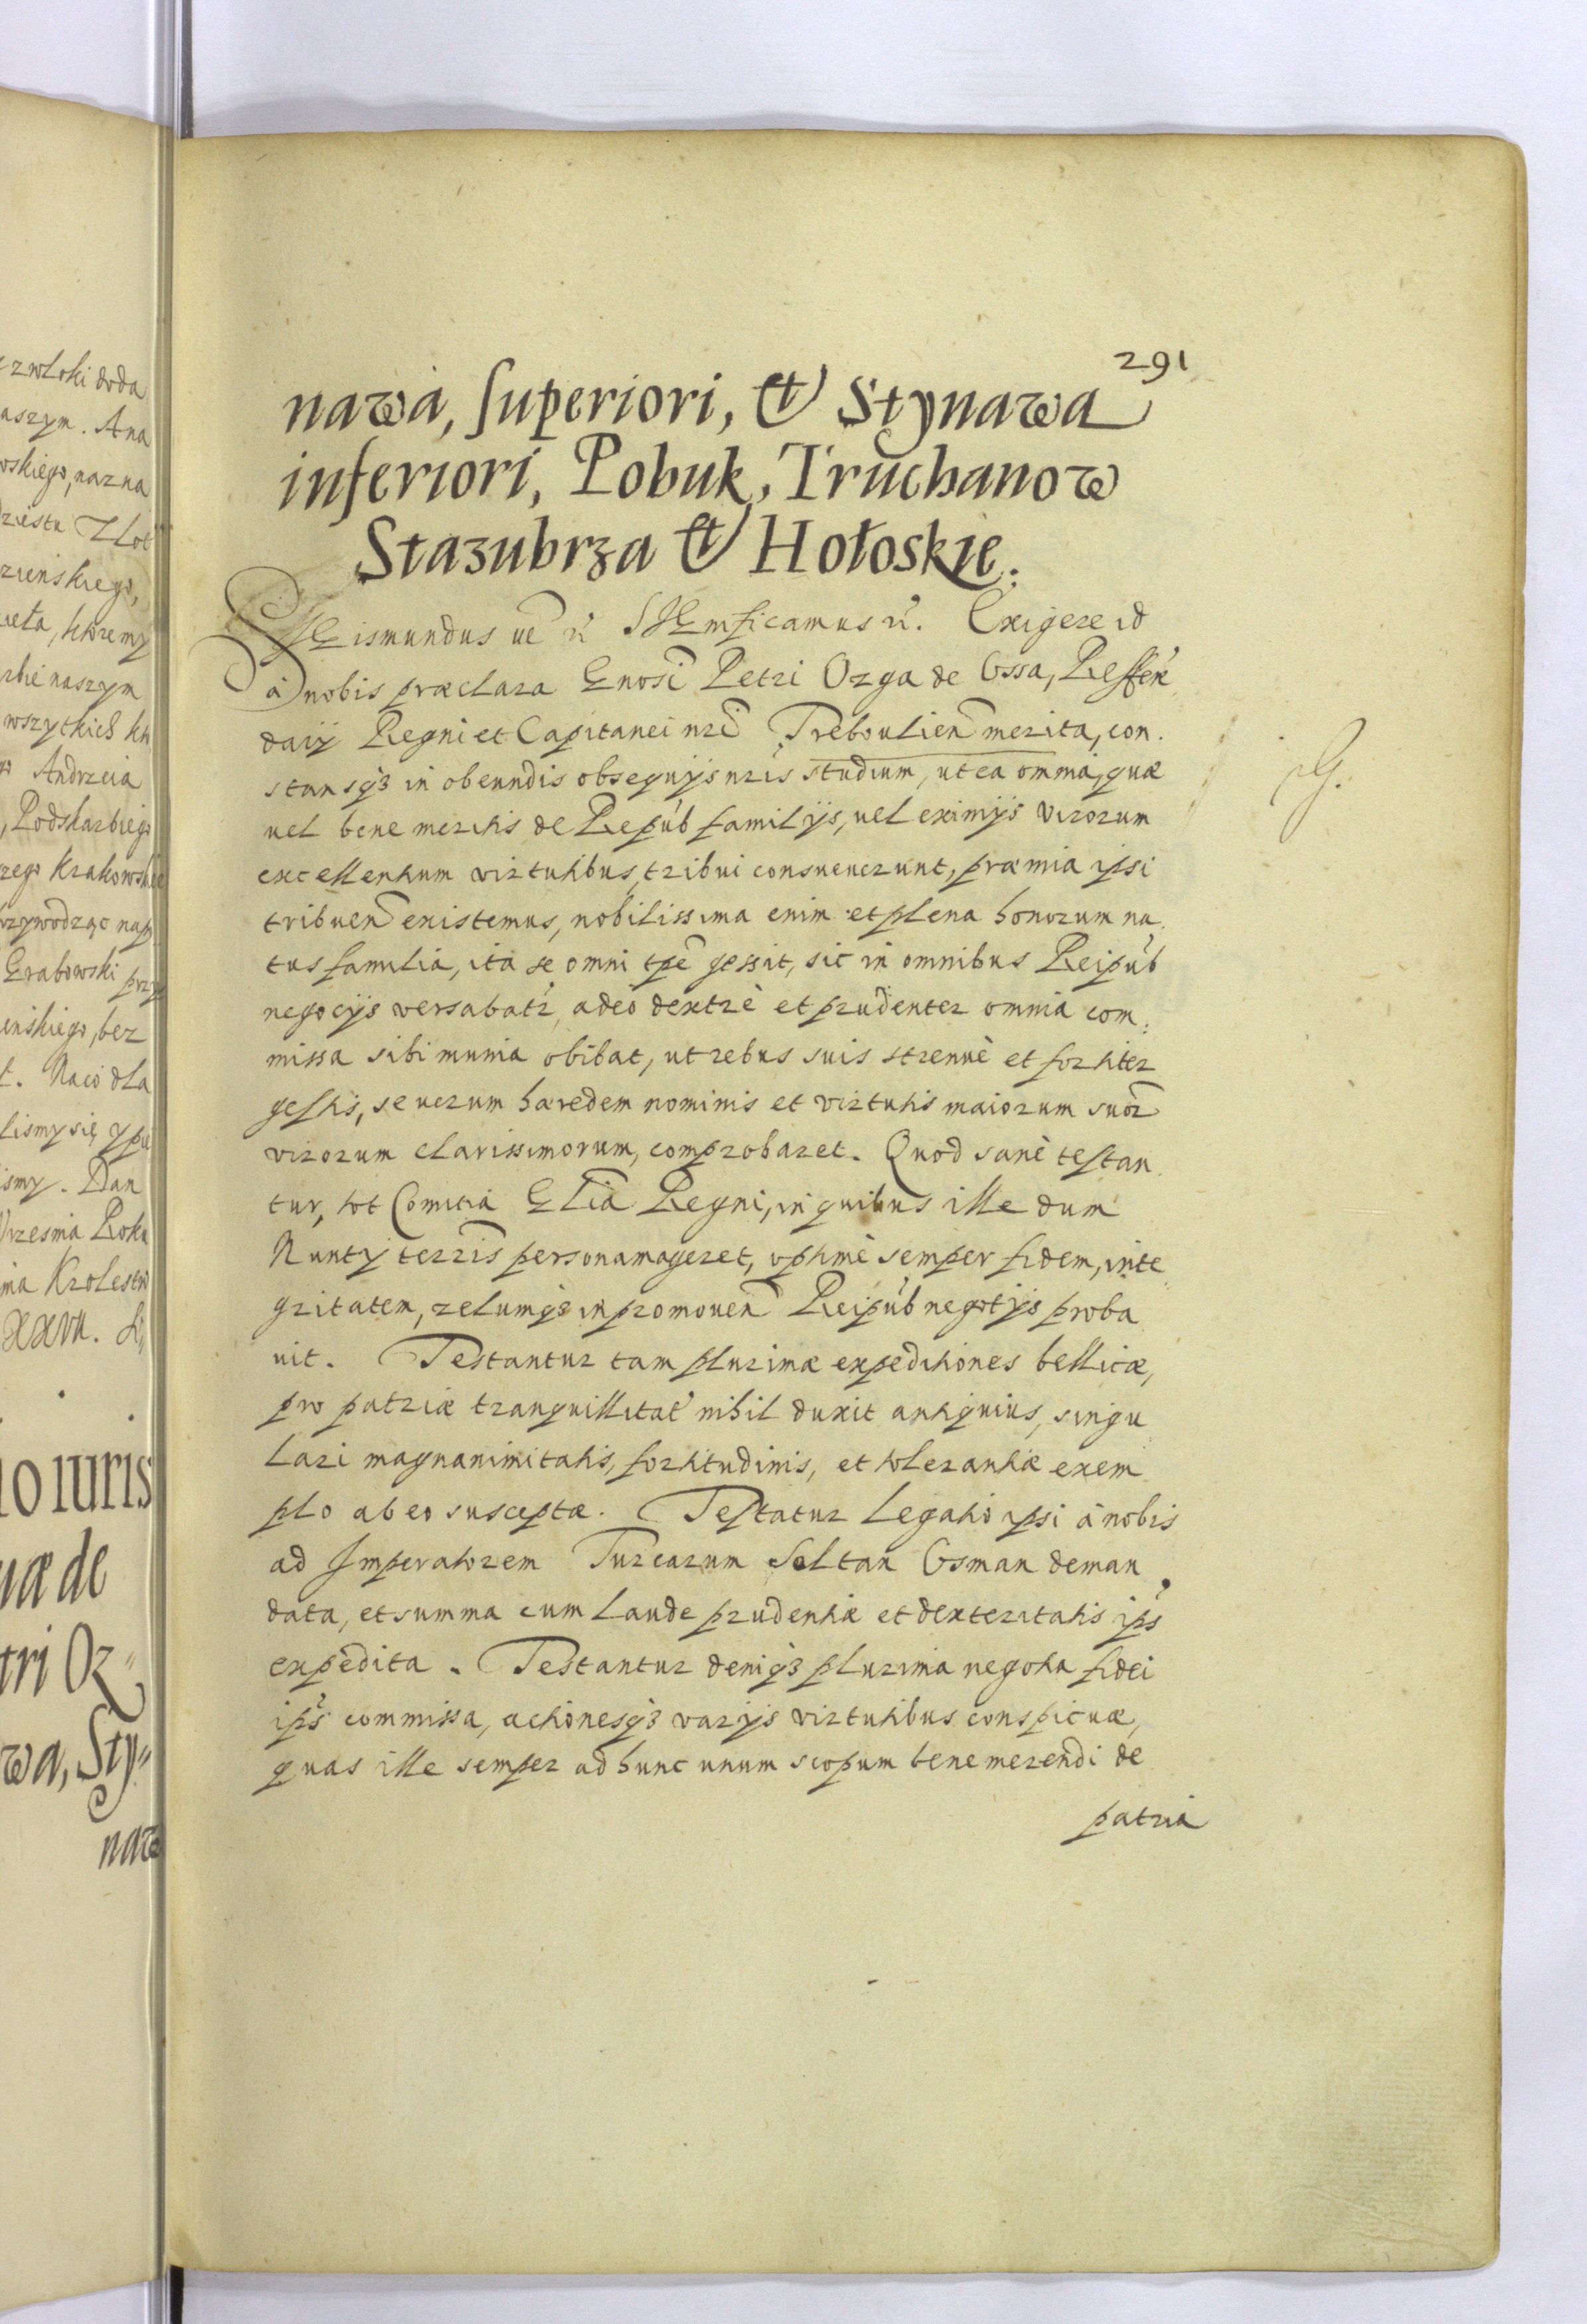 zwłoki doda
aszym. Ana
wskiego, nazna
ziesta Złot
zienskiego,
rbie naszym
wszytkich
Andrzeia
, Podskarbiego
zego Krakowskie
Grabowski prz
enskiego, bez
t. Na co dla
lismy się y
ismy. Dan
ma Krolestw
XXVII.
io iuris
uæ de
tri Oz=
wa, Sty=
naw
291
nawa, superiori, & Stynawa
inferiori, Pobuk, Truchanow
Stazubrza & Hołoskie.
Sigismundus Exigere id
à nobis præclara Gnosi Petri Ozga de Ossa, Reffere
darij Regni et Capitanei nri Trebowlien merita, con.
stansq3 in obeundis obsequijs nris studium, ut ea omnia, quæ
uel bene meritis de Repub familijs, uel eximijs virorum
excellentium virtutibus, tribui consueuerunt, præmia ipsi
tribuen existemus, nobilissima enim et plena honorum na
tus familia, ita se omni tpe gessit, sic in omnibus Reipub
negocijs versabatr, adeo dextrè et prudenter omnia com:
missa sibi munia obibat, ut rebus suis strenuè et fortiter
gestis, se uerum hæredem nominis et virtutis maiorum suor
virorum clarissimorum, comprobaret. Quod sanè testan
tur, tot Comitia Glia Regni, in quibus ille dum
Nuntij terris personam ageret, optimè semper fidem, inte
gritatem, zelumq3 in promouen Reipub negotijs proba
uit. Testantur tam plurimæ expeditiones bellicæ,
pro patriæ tranquillitat nihil duxit antiquius, singu
lari magnanimitatis, fortitudinis, et tolerantiæ exem
plo ab eo susceptæ. Testatur Legatio ipsi à nobis
ad Imperatorem Turcarum Soltan Osman deman
data, et summa cum laude prudentiæ et dexteritatis ips
expedita. Testantur deniq3 plurima negotia fidei
ips commissa, actionesq3 varijs virtutibus conspicuæ,
quas ille semper ad hunc unum scopum bene merendi de
patria